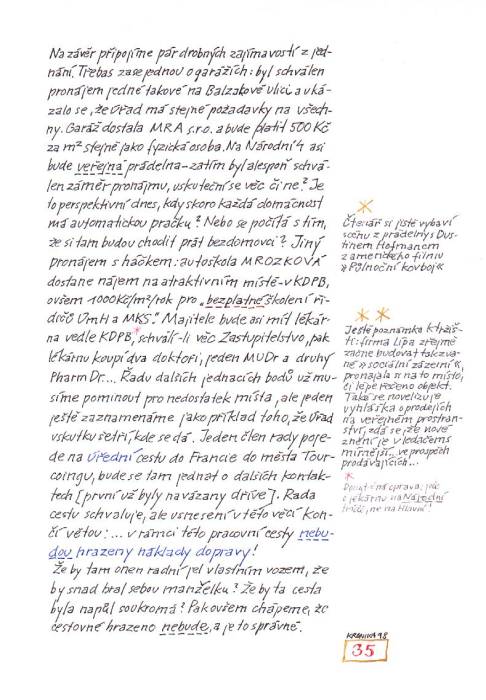 Na závěr připojíme pár drobných zajímavostí z jed-
nání. Třebas zase jednou o garážích: byl schválen
pronájem jedné takové na Balzakově ulici a uká-
zalo se, že Úřad má stejné požadavky na všech-
ny. Garáž dostala MRA s.r.o. a bude platit 500 Kč
za m² stejně jako fyzická osoba. Na Národní 4 asi
bude veřejná prádelna – zatím byl alespoň schvá-
len záměr pronájmu, uskuteční se věc či ne? Je
to perspektivní dnes, kdy skoro každá domácnost
má automatickou pračku? Nebo se počítá s tím,
že si tam budou chodit prát bezdomovci? Jiný
pronájem s háčkem: autoškola MROZKOVÁ
dostane nájem na atraktivním místě – v KDPB,
ovšem 1000Kč/m²/rok pro „bezplatné školení ři-
dičů ÚmH a MKS." Majitele bude asi mít lékár-
na vedle KDPB,* schválí-li věc Zastupitelstvo, pak
lékárnu koupí dva doktoři, jeden MUDr a druhý
PharmDr.... Řadu dalších jednacích bodů už mu-
síme pominout pro nedostatek místa, ale jeden
ještě zaznamenáme jako příklad toho, že Úřad
vskutku šetří, kde se dá. Jeden člen rady poje-
de na úřední cestu do Francie do města Tour-
coingu, bude se tam jednat o dalších kontak-
tech [první už byly navázány dříve]. Rada
cestu schvaluje, ale usnesení v této věci kon-
čí větou: ... v rámci této pracovní cesty nebu-
dou hrazeny náklady dopravy!
Že by tam onen radní jel vlastním vozem, že
by snad bral sebou manželku? Že by ta cesta
byla napůl soukromá? Pak ovšem chápeme, že
cestovné hrazeno nebude, a je to správné.
*
Čtenář si jistě vybaví
scénu z prádelny s Dus-
tinem Hofmanem
z amerického filmu
»Půlnoční kovboj«
* *
Ještě poznámka k tržiš-
ti: firma Lípa zřejmě
začne budovat takzva-
né »sociální zázemí«,
pronajala si na to místo,
či lépe řečeno objekt.
Také se novelizuje
vyhláška o prodejích
na veřejném prostran-
ství, zdá se, že nové
znění je v ledačems
mírnější... ve prospěch
prodávajících...
*
oprava: jde
o lékárnu na Národní
třídě, ne na Hlavní!
KRONIKA 98
35